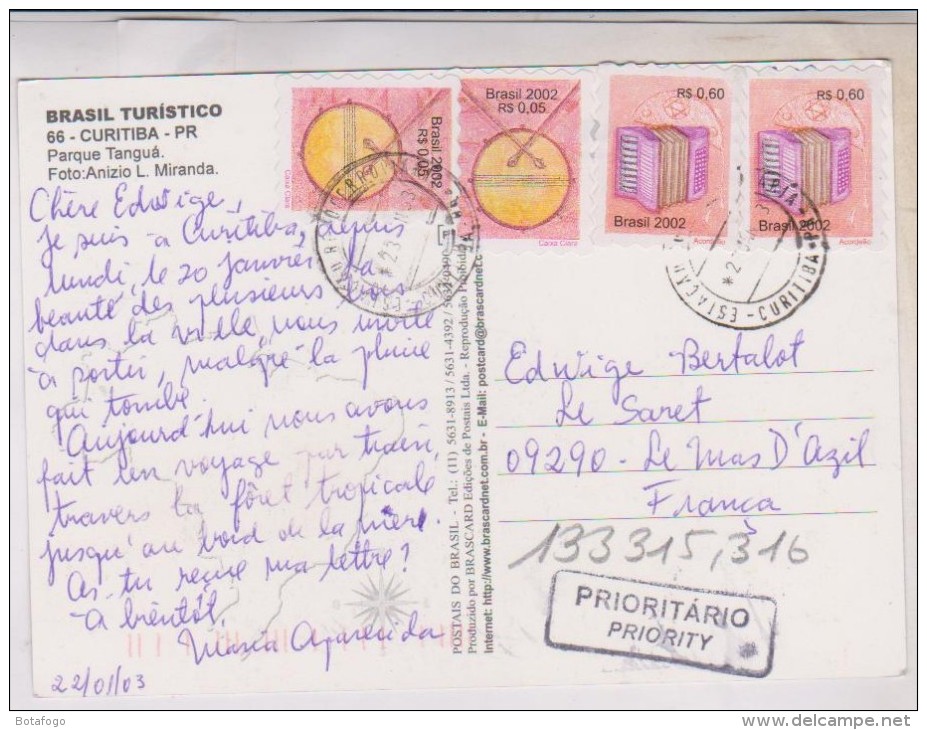 BRASIL TURÍSTICO
66 - CURITIBA - PR
Parque Tanguá.
Foto:Anizio L. Miranda.
Chère Edwige,
Je suis à Curitiba, depuis
lundi, le 20 janvier. La
beauté des plusieurs bois
dans la ville, nous invite
à sortir, malgré la pluie
qui tombe.
Aujourd'hui nous avons
fait un voyage par train,
travers la fôret tropicale
jusqu'au bord de la mère.
As-tu reçue ma lettre?
A biêntôt,
Maria Aparecida
22/01/03
Brasil 2002
R$ 0,05
Caixa Clara
Brasil 2002
R$ 0,05
Caixa Clara
R$ 0,60
Brasil 2002
Acordeão
R$ 0,60
Brasil 2002
Acordeão
ESTAÇÃO - CURITIBA - PR
POSTAIS DO BRASIL - Tel.: (11) 5631-8913 / 5631-4392 /
Produzido por BRASCARD Edições de Postais Ltda. - Reprodução Proibida
Internet: http://www.brascardnet.com.br - E-Mail: postcard@brascardnet.c
Edwige Bertalot
Le Saret
09290 - Le Mas D'Azil
França
133315,316
PRIORITÁRIO
PRIORITY
Botafogo
delcampe.net